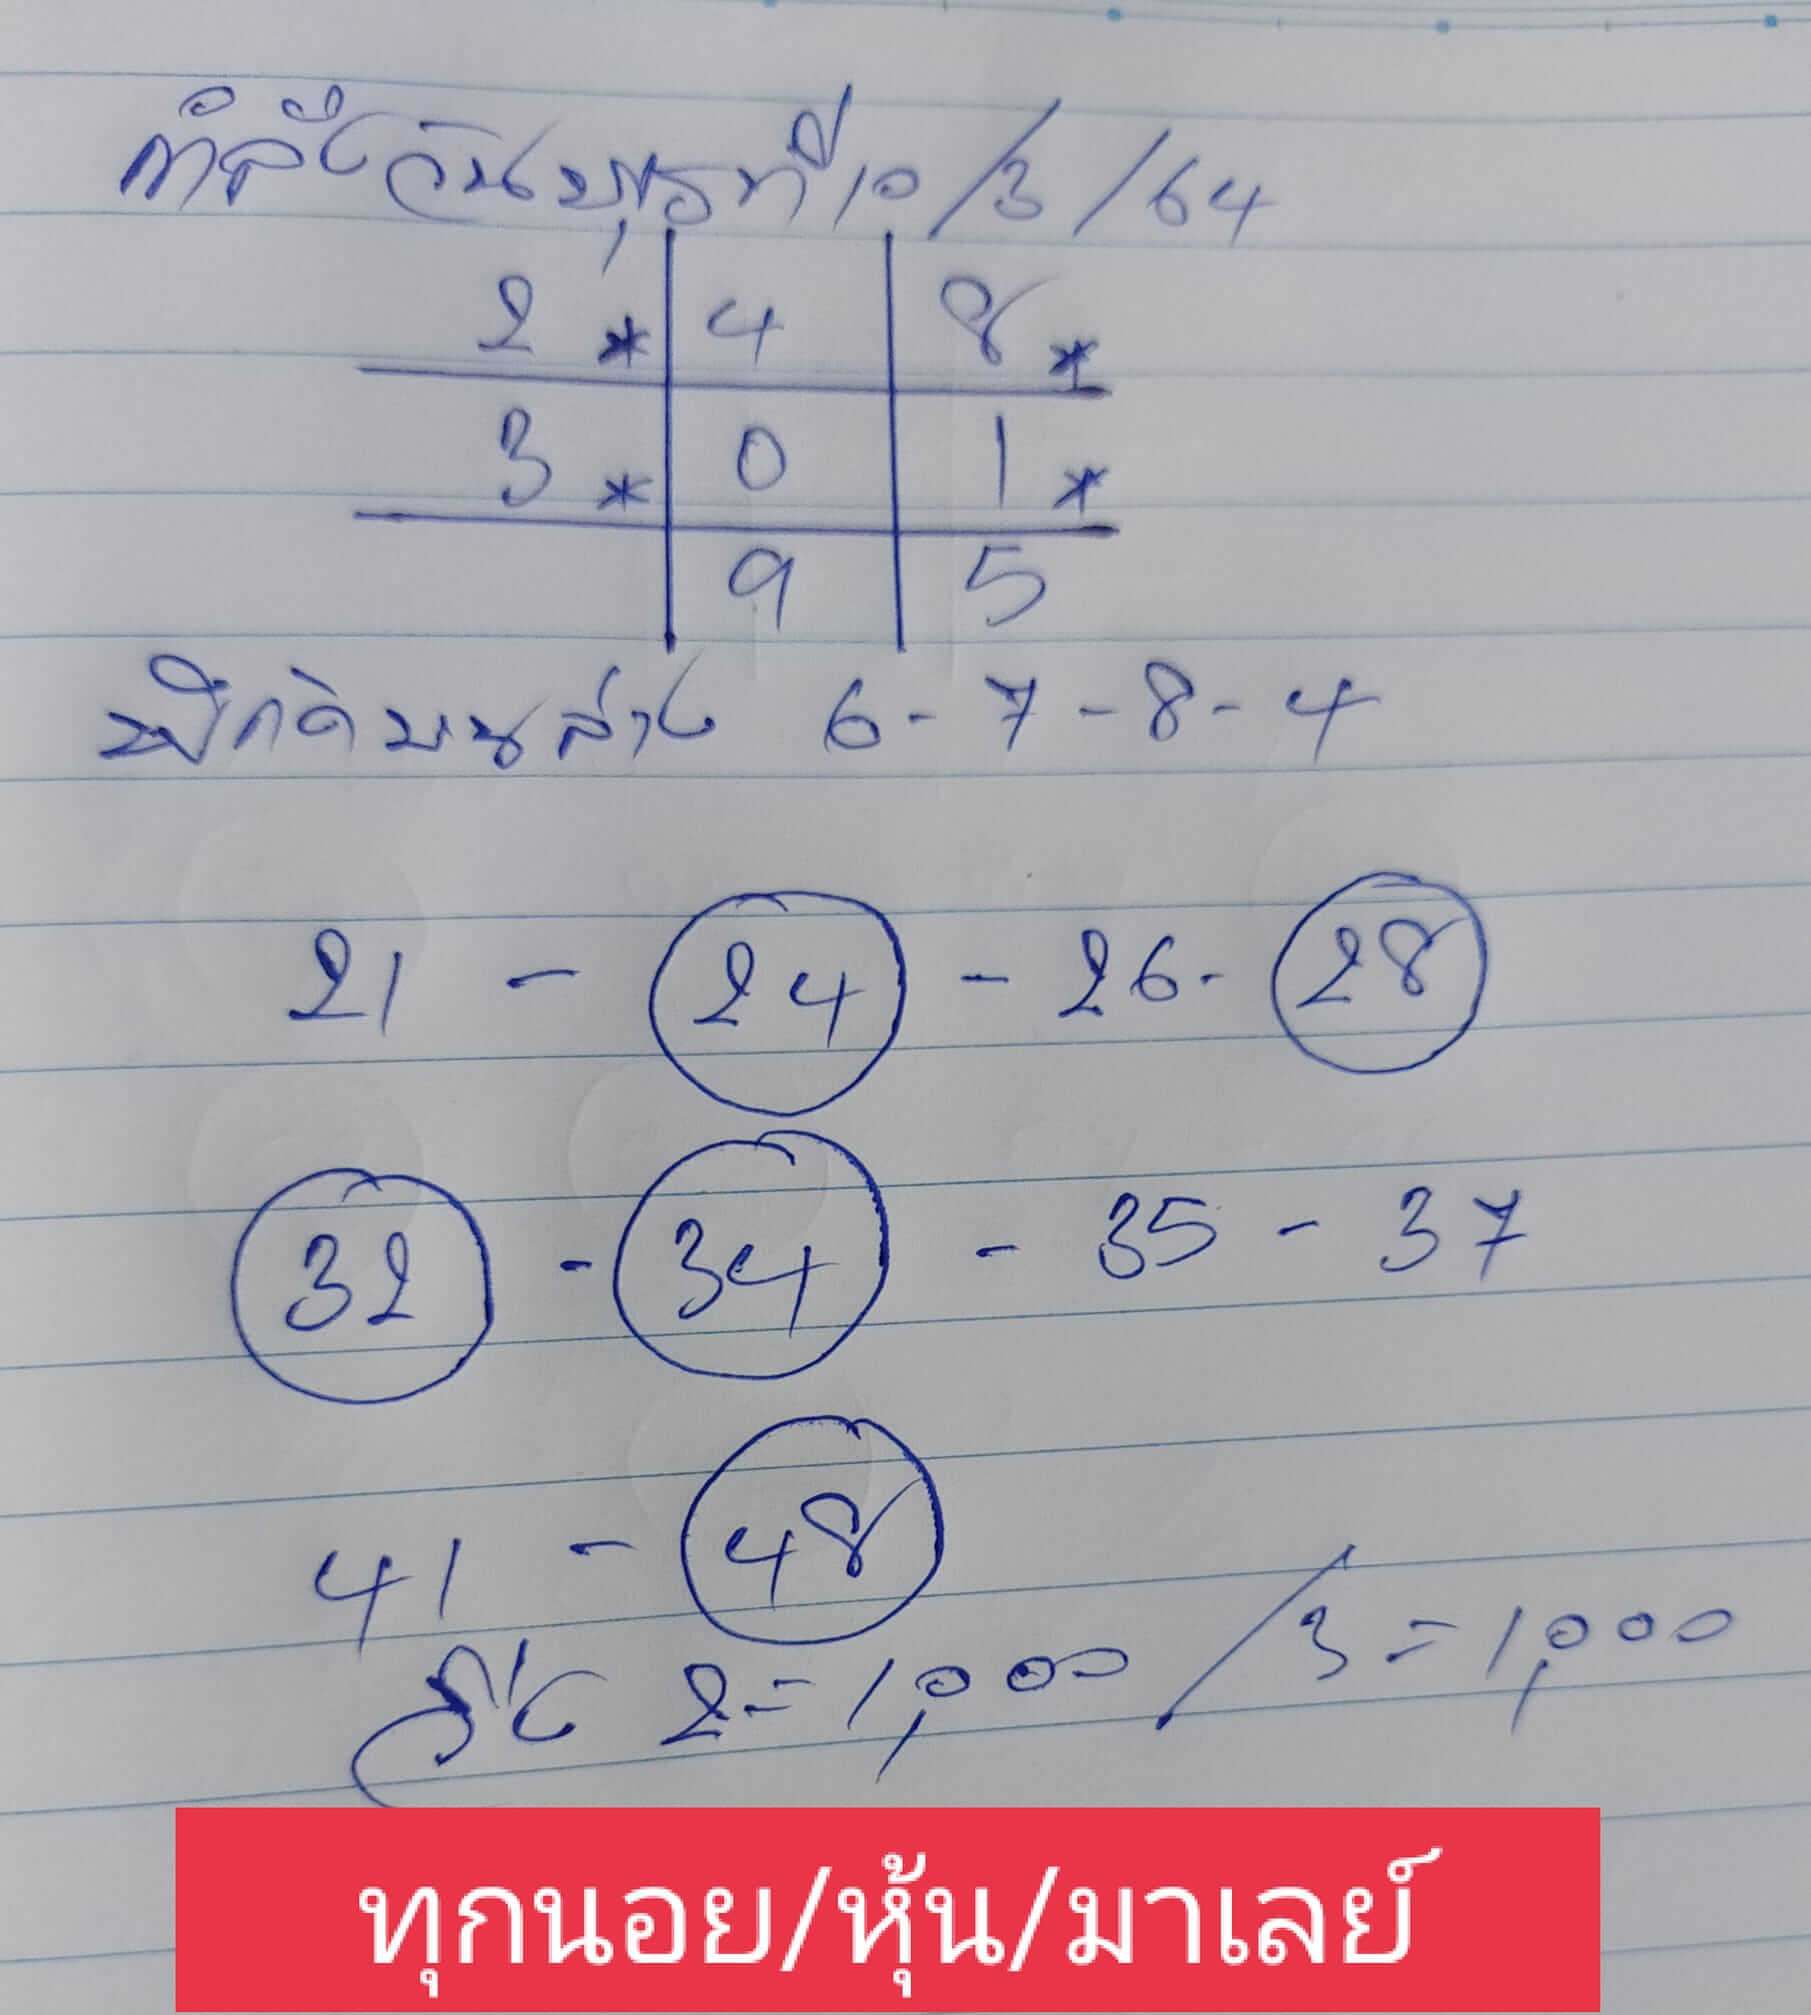 กำลังวันพุธที่ 10/3/64
2* 4 8*
3* 0 1*
9 5
พิกัดบนล่าง 6-7-8-4
21 - 24 - 26 - 28
32 - 34 - 35 - 37
41 - 48
วิ่ง 2=1,000/3=1,000
ทุกนอย/หุ้น/มาเลย์